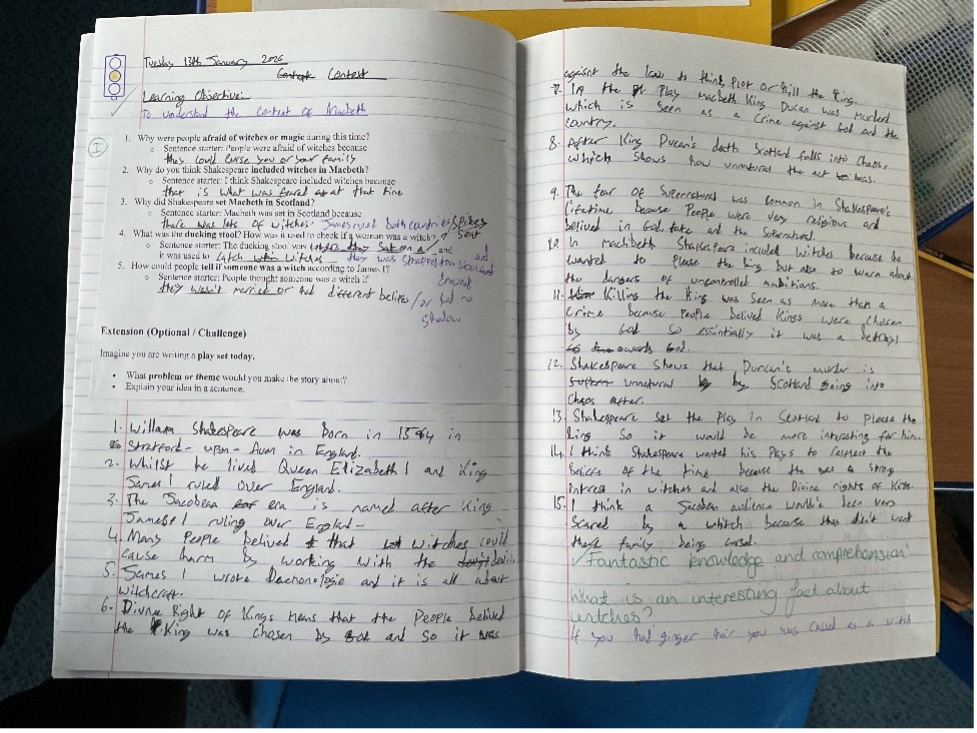 Tuesday 13th January 2026
Context
Learning Objective:
To understand the context of Macbeth
I
1. Why were people afraid of witches or magic during this time?
Sentence starter: People were afraid of witches because
they could curse you or your family
2. Why do you think Shakespeare included witches in Macbeth?
Sentence starter: I think Shakespeare included witches because
that is what was feared at that time
3. Why did Shakespeare set Macbeth in Scotland?
Sentence starter: Macbeth was set in Scotland because
there was lots of witches. James ruled both countries
4. What was the ducking stool? How was it used to check if a woman was a witch?
Sentence starter: The ducking stool was where they sat on a and
it was used to catch witches they was strapped to a stool and
drowned
5. How could people tell if someone was a witch according to James I?
Sentence starter: People thought someone was a witch if
they wasn't married or had different belifes / or had no
shadow
Extension (Optional / Challenge)
Imagine you are writing a play set today.
• What problem or theme would you make the story about?
• Explain your idea in a sentence.
1. William Shakespeare was born in 1564 in
Stratford-upon-Avon in England.
2. Whilst he lived Queen Elizabeth I and King
James I ruled over England.
3. The Jacobean era is named after King
James I ruling over England
4. Many People belived that witches could
cause harm by working with the
5. James I wrote Daemonologie and it is all about
witchcraft.
6. Divine Right of Kings means that the People belived
the King was chosen by God and so it was
against the law to think, Plot or kill the King.
7. In the Play Macbeth King Ducan was murderd
which is seen as a crime against God and the
country.
8. After King Ducan's death Scotland falls into Chaos.
which shows how unnatural the act was.
9. The fear of Supernatural was common in Shakespeare's
lifetime because People were very religious and
belived in God, fate and the Supernatural.
10. In Shakespeare included witches because he
wanted to please the king but also to warn about
the dangers of uncontrolled ambitions.
11. Killing the King was seen as more than a
crime because People belived Kings were chosen
by God so essintially it was a
towards God.
12. Shakespeare shows that Duncan's murder is
unnatural by Scotland going into
Chaos after.
13. Shakespeare set the Play in Scotland to please the
King so it would be more interesting for him.
14. I think Shakespeare wanted his Plays to reflect the
beliefs of the time because there was a strong
intrest in witches and also the Divine rights of Kings.
15. I think a Jacobean audience would've been very
scared by a whitch because they didn't want
family being cursed.
✓ Fantastic knowledge and comprehension
What is an interesting fact about
witches?
if you had ginger hair you was classed as a witch